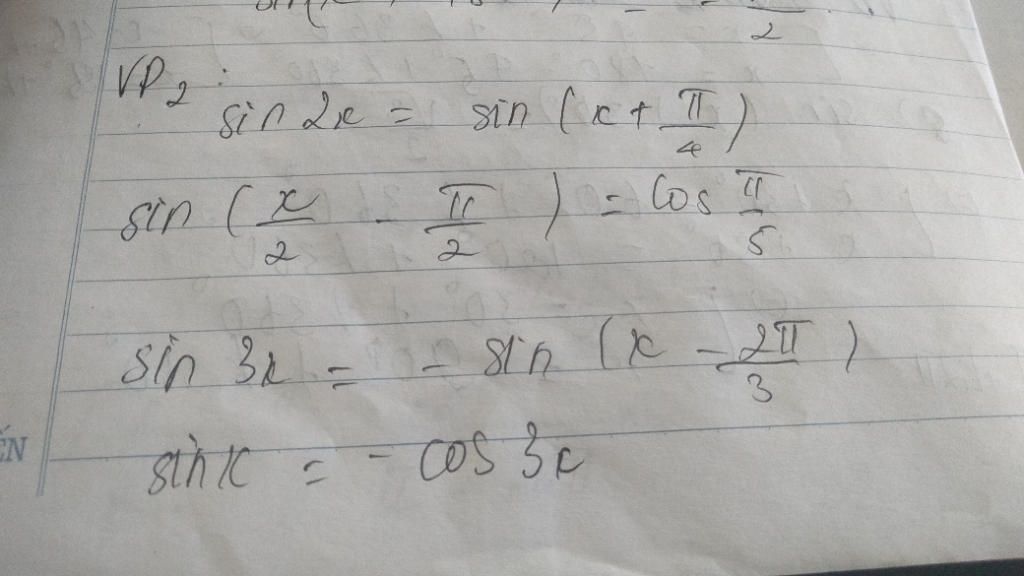 2
VD2:
sin 2x = sin (x + π/4)
sin (x/2 - π/2) = cos π/5
sin 3x = - sin (x - 2π/3)
sin x = - cos 3x
ẾN